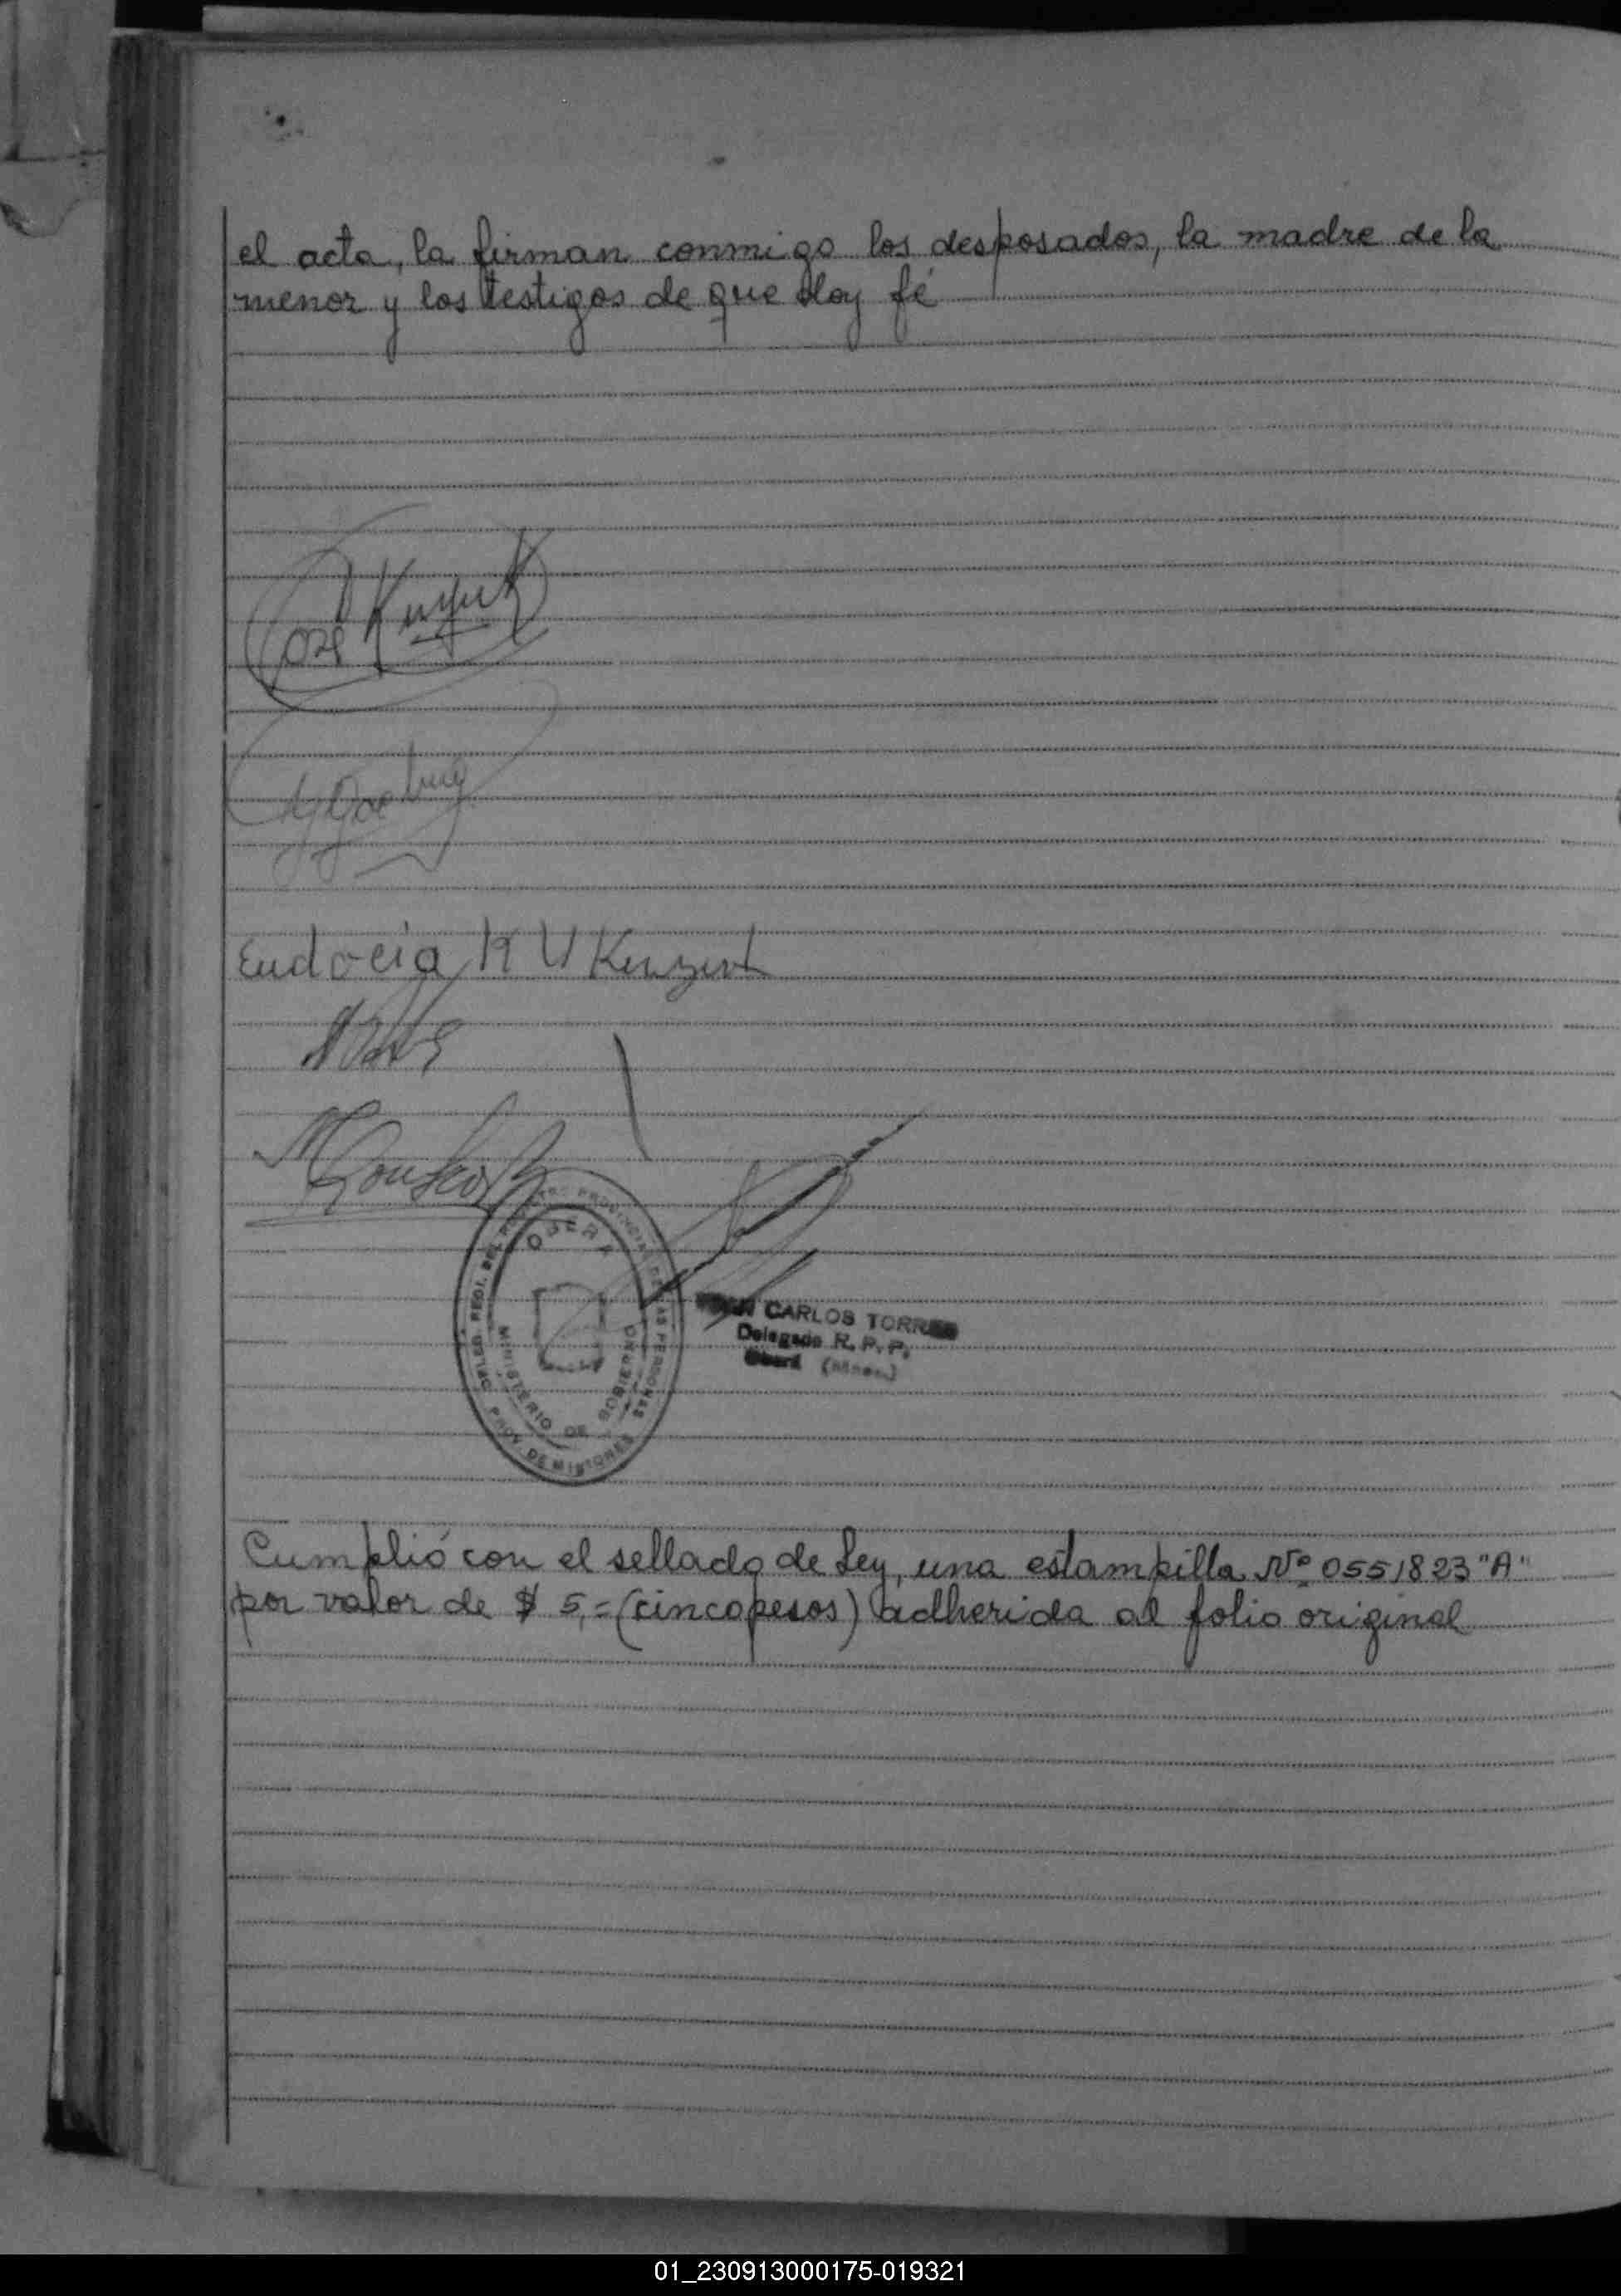 el acta, la firman conmigo los desposados, la madre de la
menor y los testigos de que doy fé
Eudocia K V Kunzert
OBERA
MINISTERIO DE GOBIERNO
PROV. DE MISIONES
CARLOS TORRES
Delegado R. P. P.
Oberá (Mnes.)
Cumplió con el sellado de Ley, una estampilla Nº 0551823 "A"
por valor de $ 5,= (cinco pesos) adherida al folio original
01_230913000175-019321